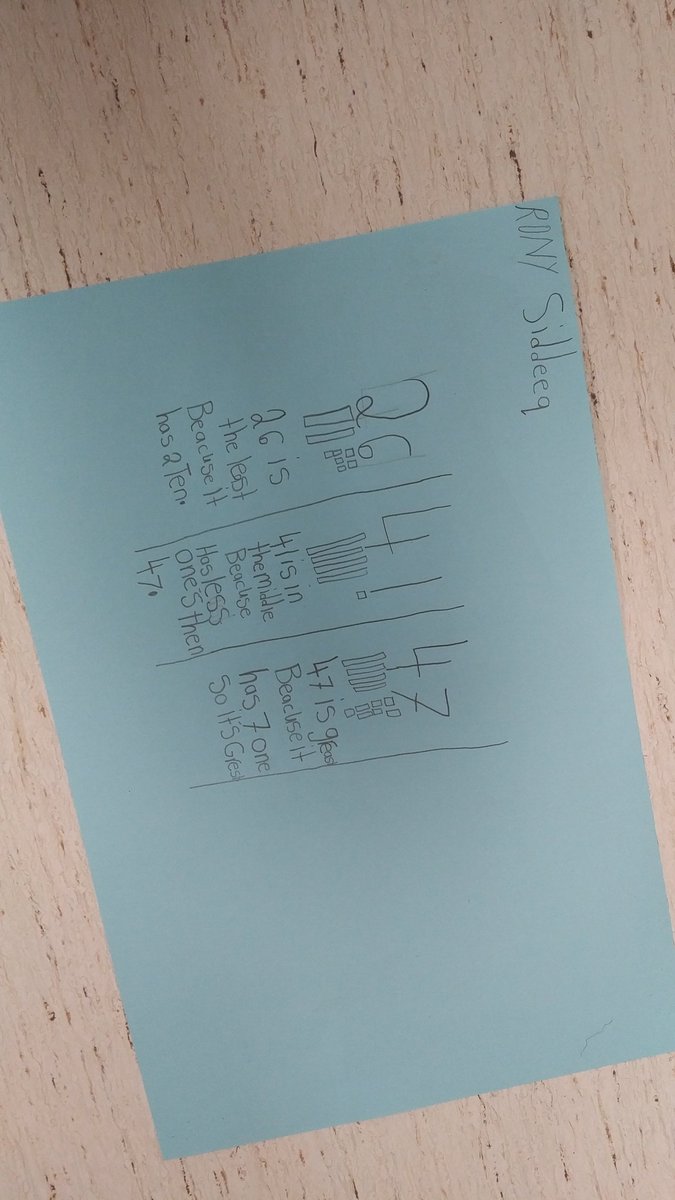 RONY Siddeeq
26
26 is
the least
Beacuse it
has 2 Ten.
41
41 is in
the middle
Beacuse
Has less
ones then
47.
47
47 is greast
Beacuse it
has 7 one
So it's Grest